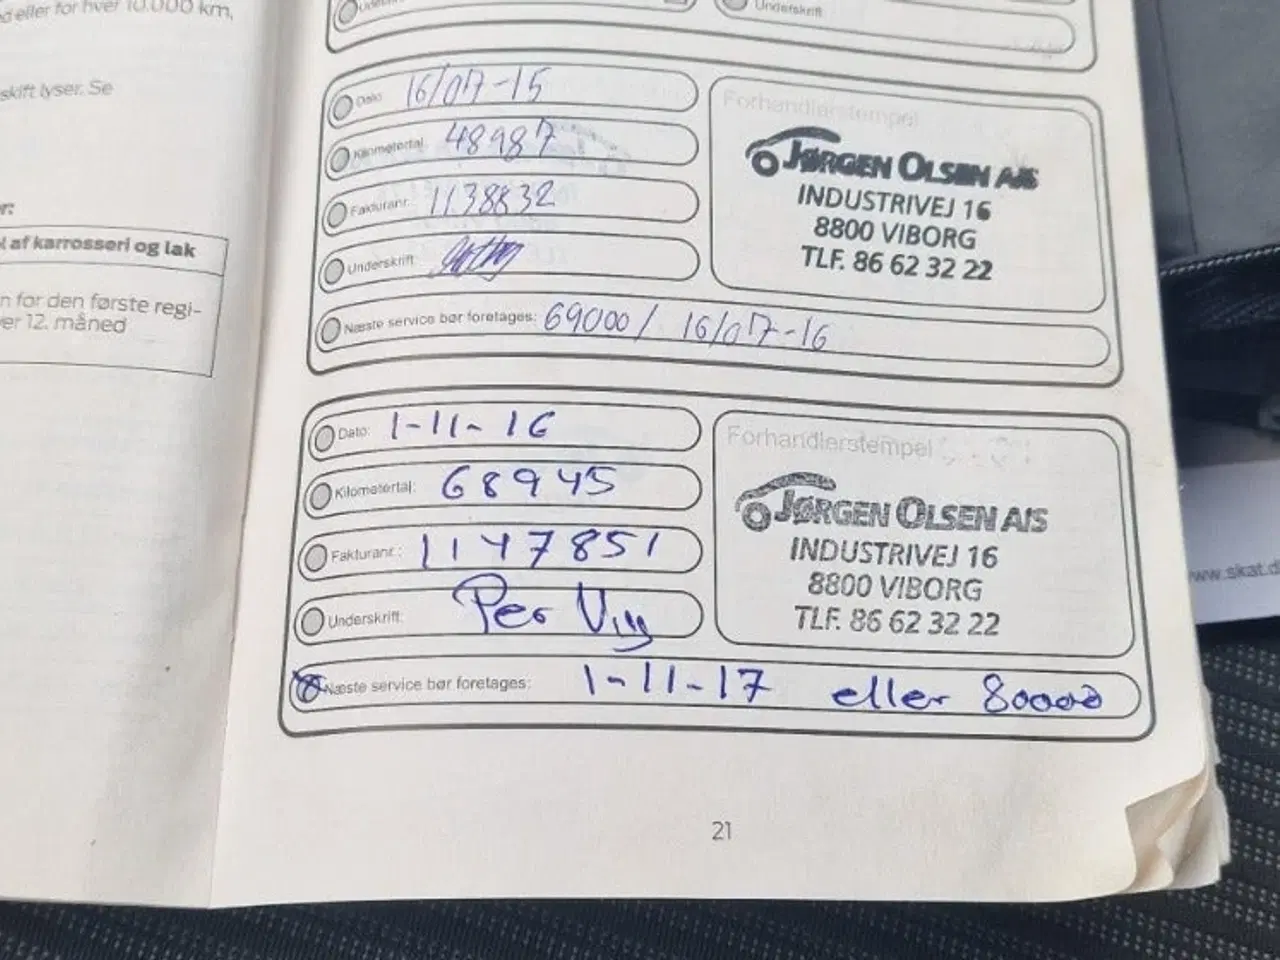 d eller for hver 10.000 km,
skift lyser. Se
er:
l af karrosseri og lak
n for den første regi-
ver 12. måned
Underskrift
Dato: 16/07-15
Kilometertal: 48987
Fakturanr.: 1138832
Underskrift:
Næste service bør foretages: 69000 / 16/07-16
Forhandlerstempel
JØRGEN OLSEN A/S
INDUSTRIVEJ 16
8800 VIBORG
TLF. 86 62 32 22
Dato: 1-11-16
Kilometertal: 68945
Fakturanr.: 1147851
Underskrift: Per
Næste service bør foretages: 1-11-17 eller 80000
Forhandlerstempel
JØRGEN OLSEN A/S
INDUSTRIVEJ 16
8800 VIBORG
TLF. 86 62 32 22
21
www.skat.d